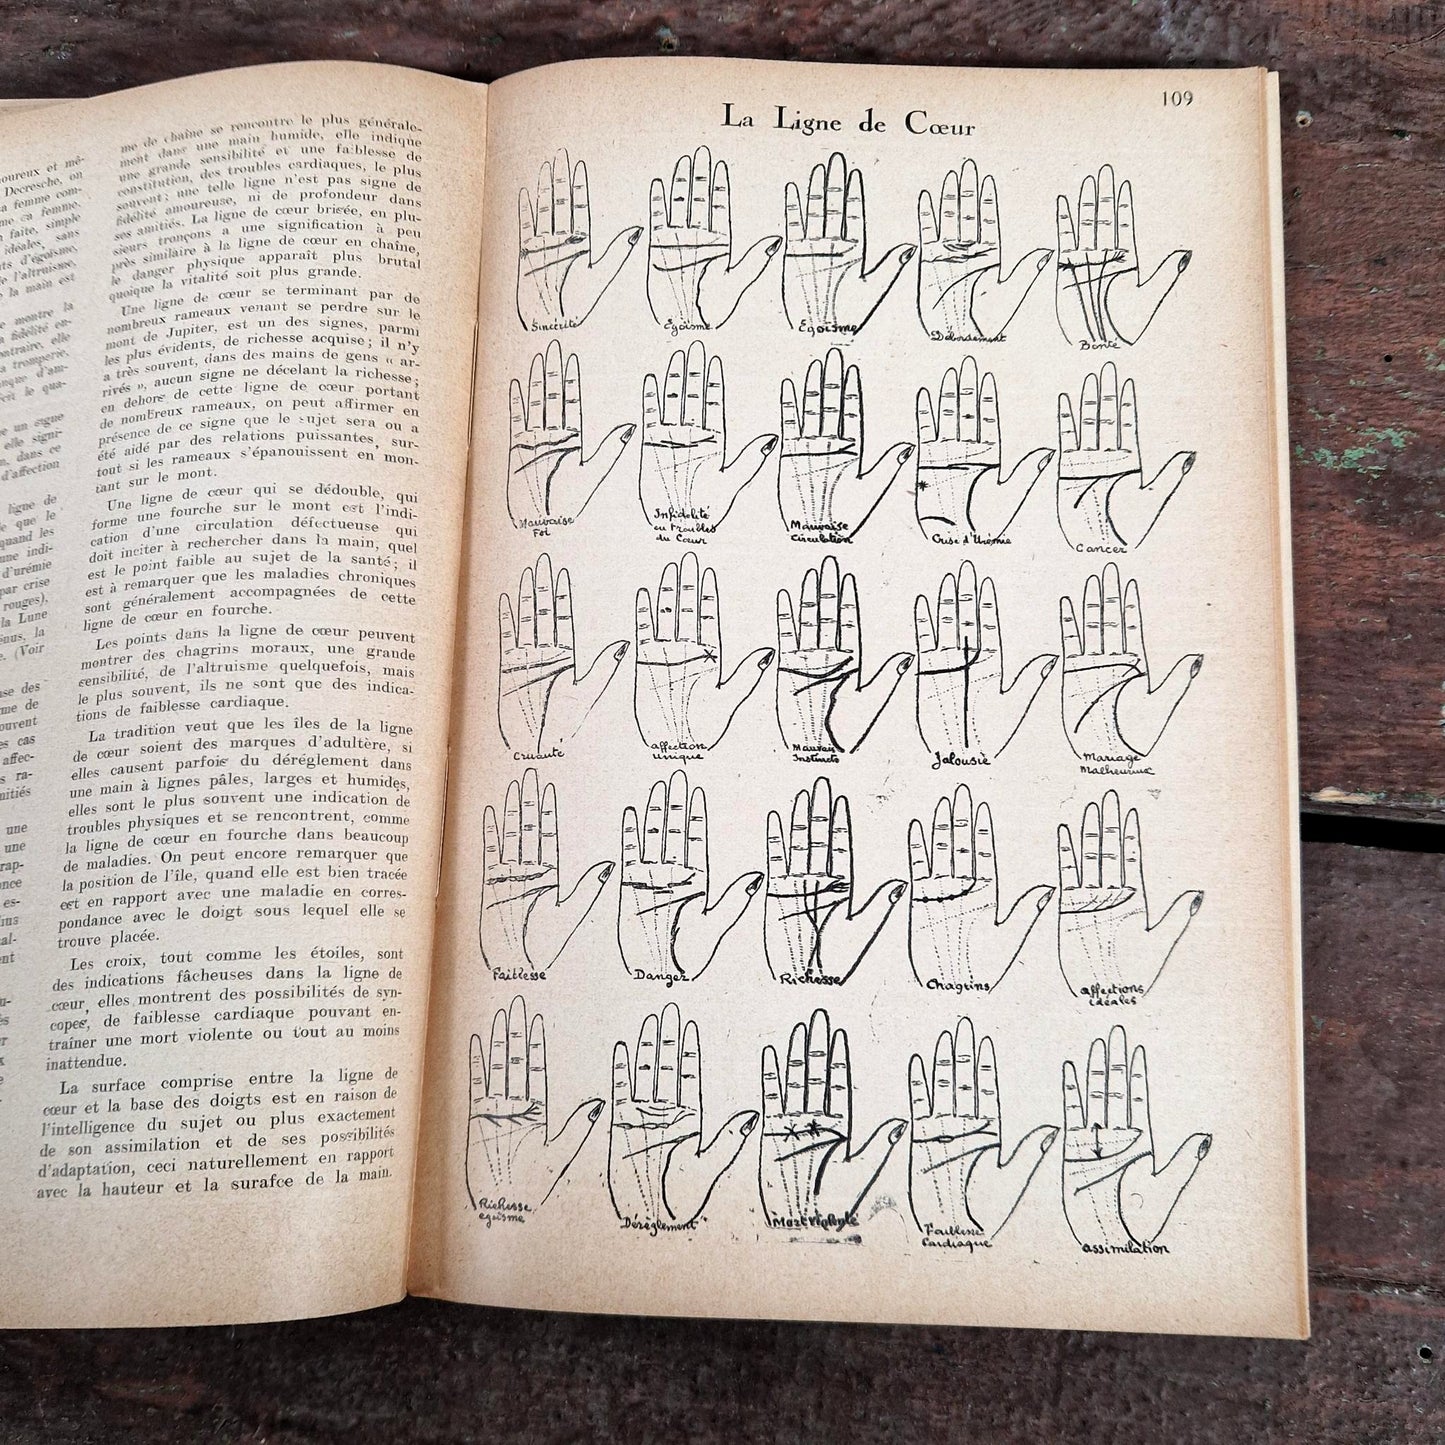 oureux et mê-
Decresche, on
a femme com-
me ca femme.
faite, simple
idéales, sans
ts d'égoïsme,
e l'altruisme.
la main est
e montre la
fidélité en-
ontraire, elle
a tromperie.
nque d'am-
cit le qua-
e un signe
elle signi-
n. dans ce
d'affection
ligne de
e que le
quand les
une indi-
d'urémie
par crise
rouges),
la Lune
énus, la
e. (Voir
se des
me de
ouvent
es cas
affec-
s ra-
mitiés
une
une
rap-
once
es-
ins
cal-
ent
me de chaîne se rencontre le plus générale-
ment dans une main humide, elle indique
une grande sensibilité et une faiblesse de
constitution, des troubles cardiaques, le plus
souvent; une telle ligne n'est pas signe de
fidélité amoureuse, ni de profondeur dans
ses amitiés. La ligne de cœur brisée, en plu-
sieurs tronçons a une signification à peu
près similaire à la ligne de cœur en chaîne,
le danger physique apparaît plus brutal
quoique la vitalité soit plus grande.
Une ligne de cœur se terminant par de
nombreux rameaux venant se perdre sur le
mont de Jupiter, est un des signes, parmi
les plus évidents, de richesse acquise; il n'y
a très souvent, dans des mains de gens « ar-
rivés », aucun signe ne décelant la richesse;
en dehors de cette ligne de cœur portant
de nombreux rameaux, on peut affirmer en
présence de ce signe que le sujet sera ou a
été aidé par des relations puissantes, sur-
tout si les rameaux s'épanouissent en mon-
tant sur le mont.
Une ligne de cœur qui se dédouble, qui
forme une fourche sur le mont est l'indi-
cation d'une circulation défectueuse qui
doit inciter à rechercher dans la main, quel
est le point faible au sujet de la santé; il
est à remarquer que les maladies chroniques
sont généralement accompagnées de cette
ligne de cœur en fourche.
Les points dans la ligne de cœur peuvent
montrer des chagrins moraux, une grande
sensibilité, de l'altruisme quelquefois, mais
le plus souvent, ils ne sont que des indica-
tions de faiblesse cardiaque.
La tradition veut que les îles de la ligne
de cœur soient des marques d'adultère, si
elles causent parfois du dérèglement dans
une main à lignes pâles, larges et humides,
elles sont le plus souvent une indication de
troubles physiques et se rencontrent, comme
la ligne de cœur en fourche dans beaucoup
de maladies. On peut encore remarquer que
la position de l'île, quand elle est bien tracée
est en rapport avec une maladie en corres-
pondance avec le doigt sous lequel elle se
trouve placée.
Les croix, tout comme les étoiles, sont
des indications fâcheuses dans la ligne de
cœur, elles montrent des possibilités de syn-
copes, de faiblesse cardiaque pouvant en-
traîner une mort violente ou tout au moins
inattendue.
La surface comprise entre la ligne de
cœur et la base des doigts est en raison de
l'intelligence du sujet ou plus exactement
de son assimilation et de ses possibilités
d'adaptation, ceci naturellement en rapport
avec la hauteur et la surafce de la main.
109
La Ligne de Cœur
Sincérité
Egoïsme
Egoïsme
Débordement
Bonté
Mauvaise
Foi
Infidélité
ou troubles
du Cœur
Mauvaise
Circulation
Crise d'Urémie
Cancer
Cruauté
affection
unique
Mauvais
Instincts
Jalousie
Mariage
Malheureux
Faiblesse
Danger
Richesse
Chagrins
affections
idéales
Richesse
egoisme
Dérèglement
Mort violente
Faiblesse
Cardiaque
assimilation